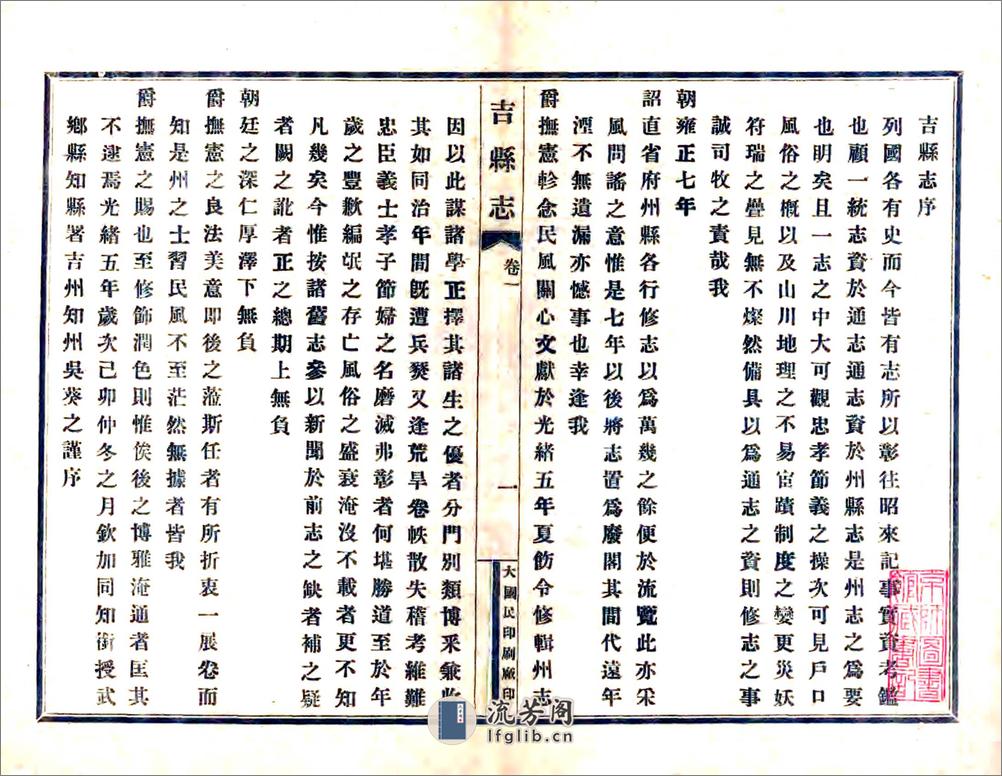 吉縣志序
列國各有史而今皆有志所以彰往昭來記事實資考鑑
也顧一統志資於通志通志資於州縣志是州志之爲要
也明矣且一志之中大可觀忠孝節義之操次可見戶口
風俗之概以及山川地理之不易宦蹟制度之變更災妖
符瑞之疊見無不燦然備具以爲通志之資則修志之事
誠司牧之責哉我
朝雍正七年
詔直省府州縣各行修志以爲萬幾之餘便於流覽此亦采
風問謠之意惟是七年以後將志置爲廢閣其間代遠年
湮不無遺漏亦憾事也幸逢我
爵撫憲軫念民風關心文獻於光緒五年夏飭令修輯州志
吉縣志
卷一
一
大國民印刷廠印
因以此謀諸學正擇其諸生之優者分門別類博釆兼收
其如同治年間旣遭兵燹又逢荒旱卷帙散失稽考維難
忠臣義士孝子節婦之名磨滅弗彰者何堪勝道至於年
歲之豐歉編氓之存亡風俗之盛衰淹沒不載者更不知
凡幾矣今惟按諸舊志參以新聞於前志之缺者補之疑
者闕之訛者正之總期上無負
朝廷之深仁厚澤下無負
爵撫憲之良法美意即後之蒞斯任者有所折衷一展卷而
知是州之士習民風不至茫然無據者皆我
爵撫憲之賜也至修飾潤色則惟俟後之博雅淹通者匡其
不逮焉光緒五年歲次己卯仲冬之月欽加同知銜授武
鄉縣知縣署吉州知州吳葵之謹序
京師圖書
館藏書記
流芳阁
lfglib.cn